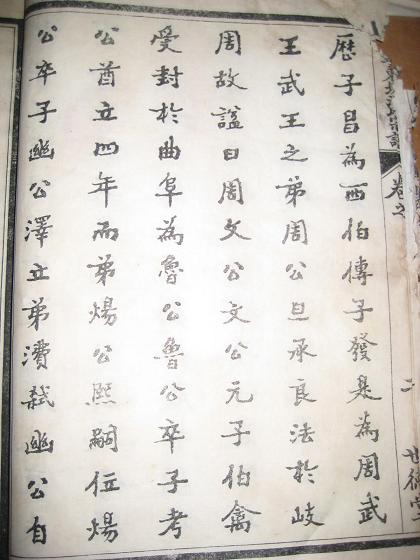 歷子昌為西伯傳子發是為周武
王武王之弟周公旦承良法於岐
周故謚曰周文公文公元子伯禽
受封於曲阜為魯公魯公卒子考
公酋立四年而弟煬公熙嗣位煬
公卒子幽公澤立弟濞弒幽公自
卷之
二
世德堂